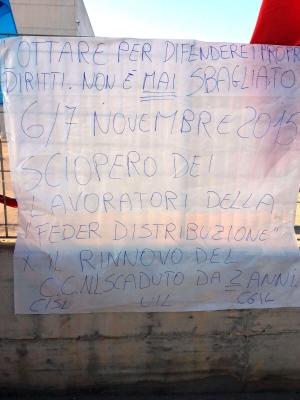 OTTARE PER DIFENDERE I PROPR
DIRITTI. NON È MAI SBAGLIATO
6/7 NOVEMBRE 2015
SCIOPERO DEI
LAVORATORI DELLA
"FEDER DISTRIBUZIONE"
X IL RINNOVO DEL
C.C.N.L SCADUTO DA 2 ANNI
CISL UIL CGIL